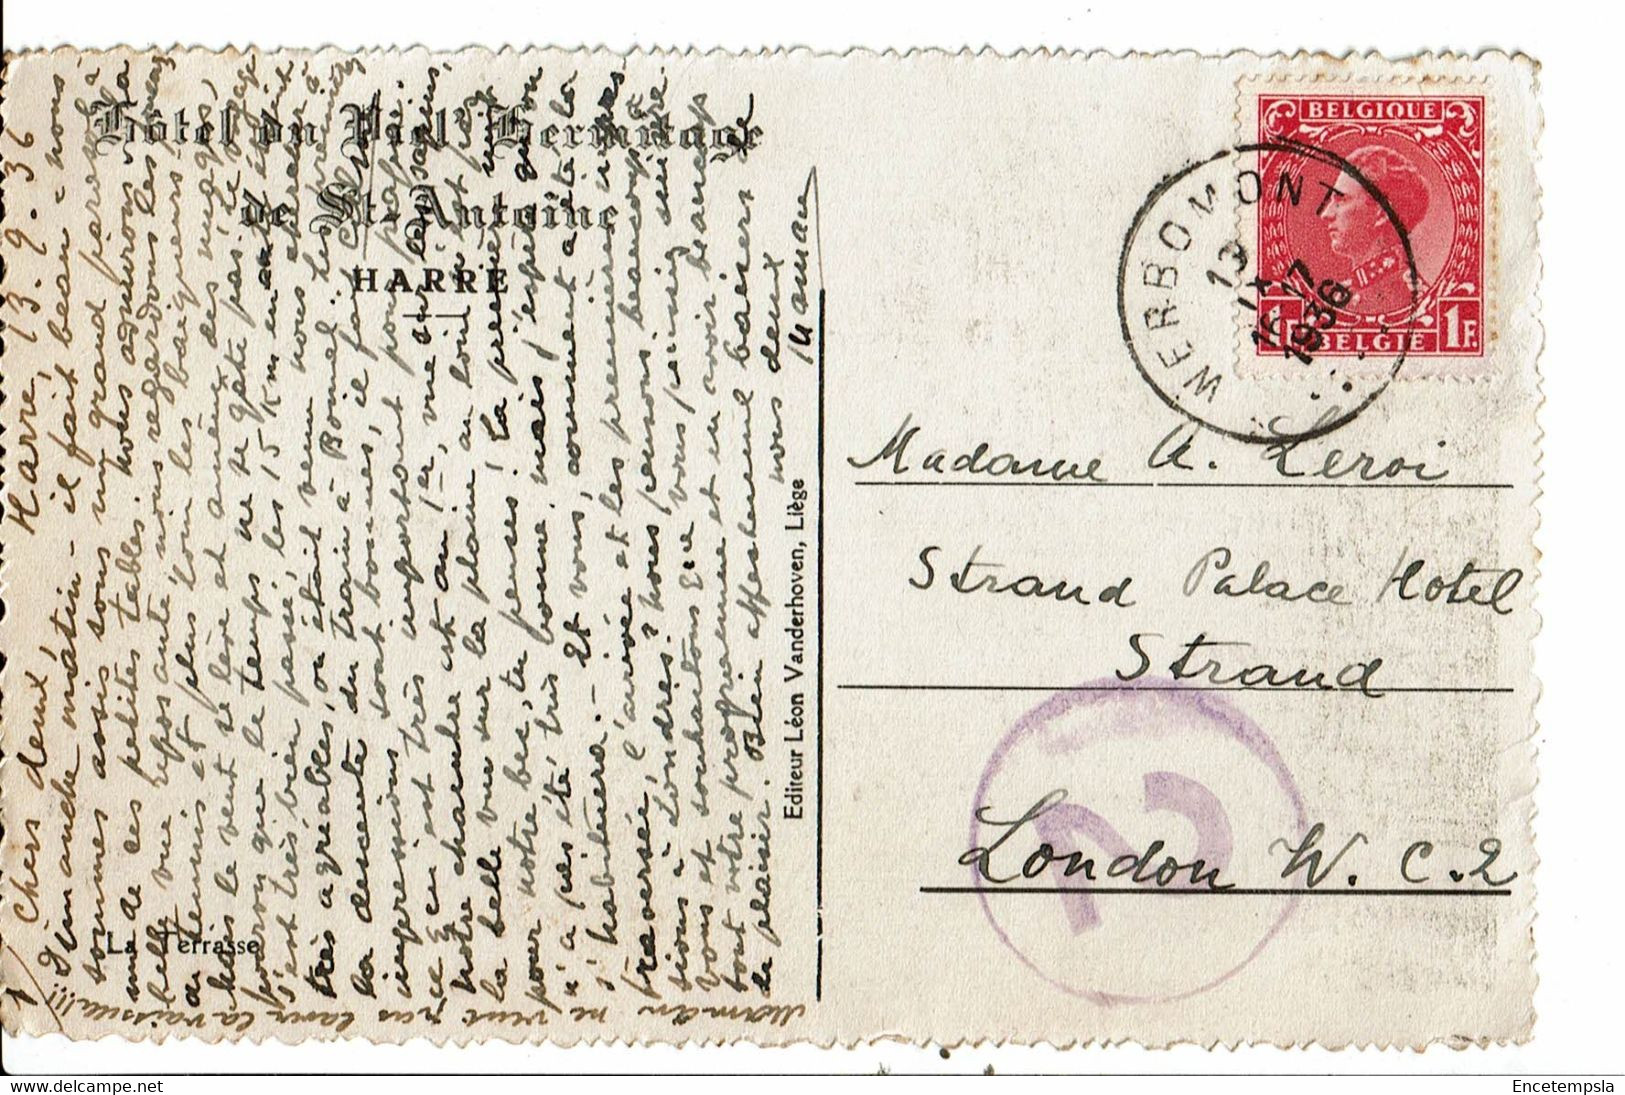 Hôtel du Vieil Hermitage
de St-Antoine
HARRE
La Terrasse
Editeur Léon Vanderhoven, Liège
BELGIQUE
1F.
BELGIË
WERBOMONT
13
IX
16-17
1936
2
Madame A. Leroi
Strand Palace Hotel
Strand
London W.C.2
Harre, 13.9.36
Chers deux,
Dimanche matin - il fait beau - nous
sommes assis sous un grand parasol à
une de ces petites tables. nous admirons la
belle vue reposante, nous regardons les joueurs
de tennis et plus loin les baigneurs
mais le vent se lève et amène des nuages,
pourvu que le temps ne se gâte pas, le voyage
s'est très bien passé, les 15 km en auto
très agréables, on était venu nous chercher à
la descente du train à Bomal. Les premières
impressions sont bonnes, il fait
ce qui est très important pour
notre chambre est au 1er, vue sur les sapins,
la belle vue sur la plaine au loin
pour notre bec, tu penses! La première nuit
n'a pas été très bonne, mais j'espère qu'on
s'habituera. - Et vous, comment a été la
traversée, l'arrivée et les premières
à Londres. nous pensons beaucoup à
vous et souhaitons que vous puissiez suivre
tout votre programme et en avoir beaucoup
de plaisir. Bien affectueux baisers de
nous deux
Maman
Maman ne veut pas laver la vaisselle!!!